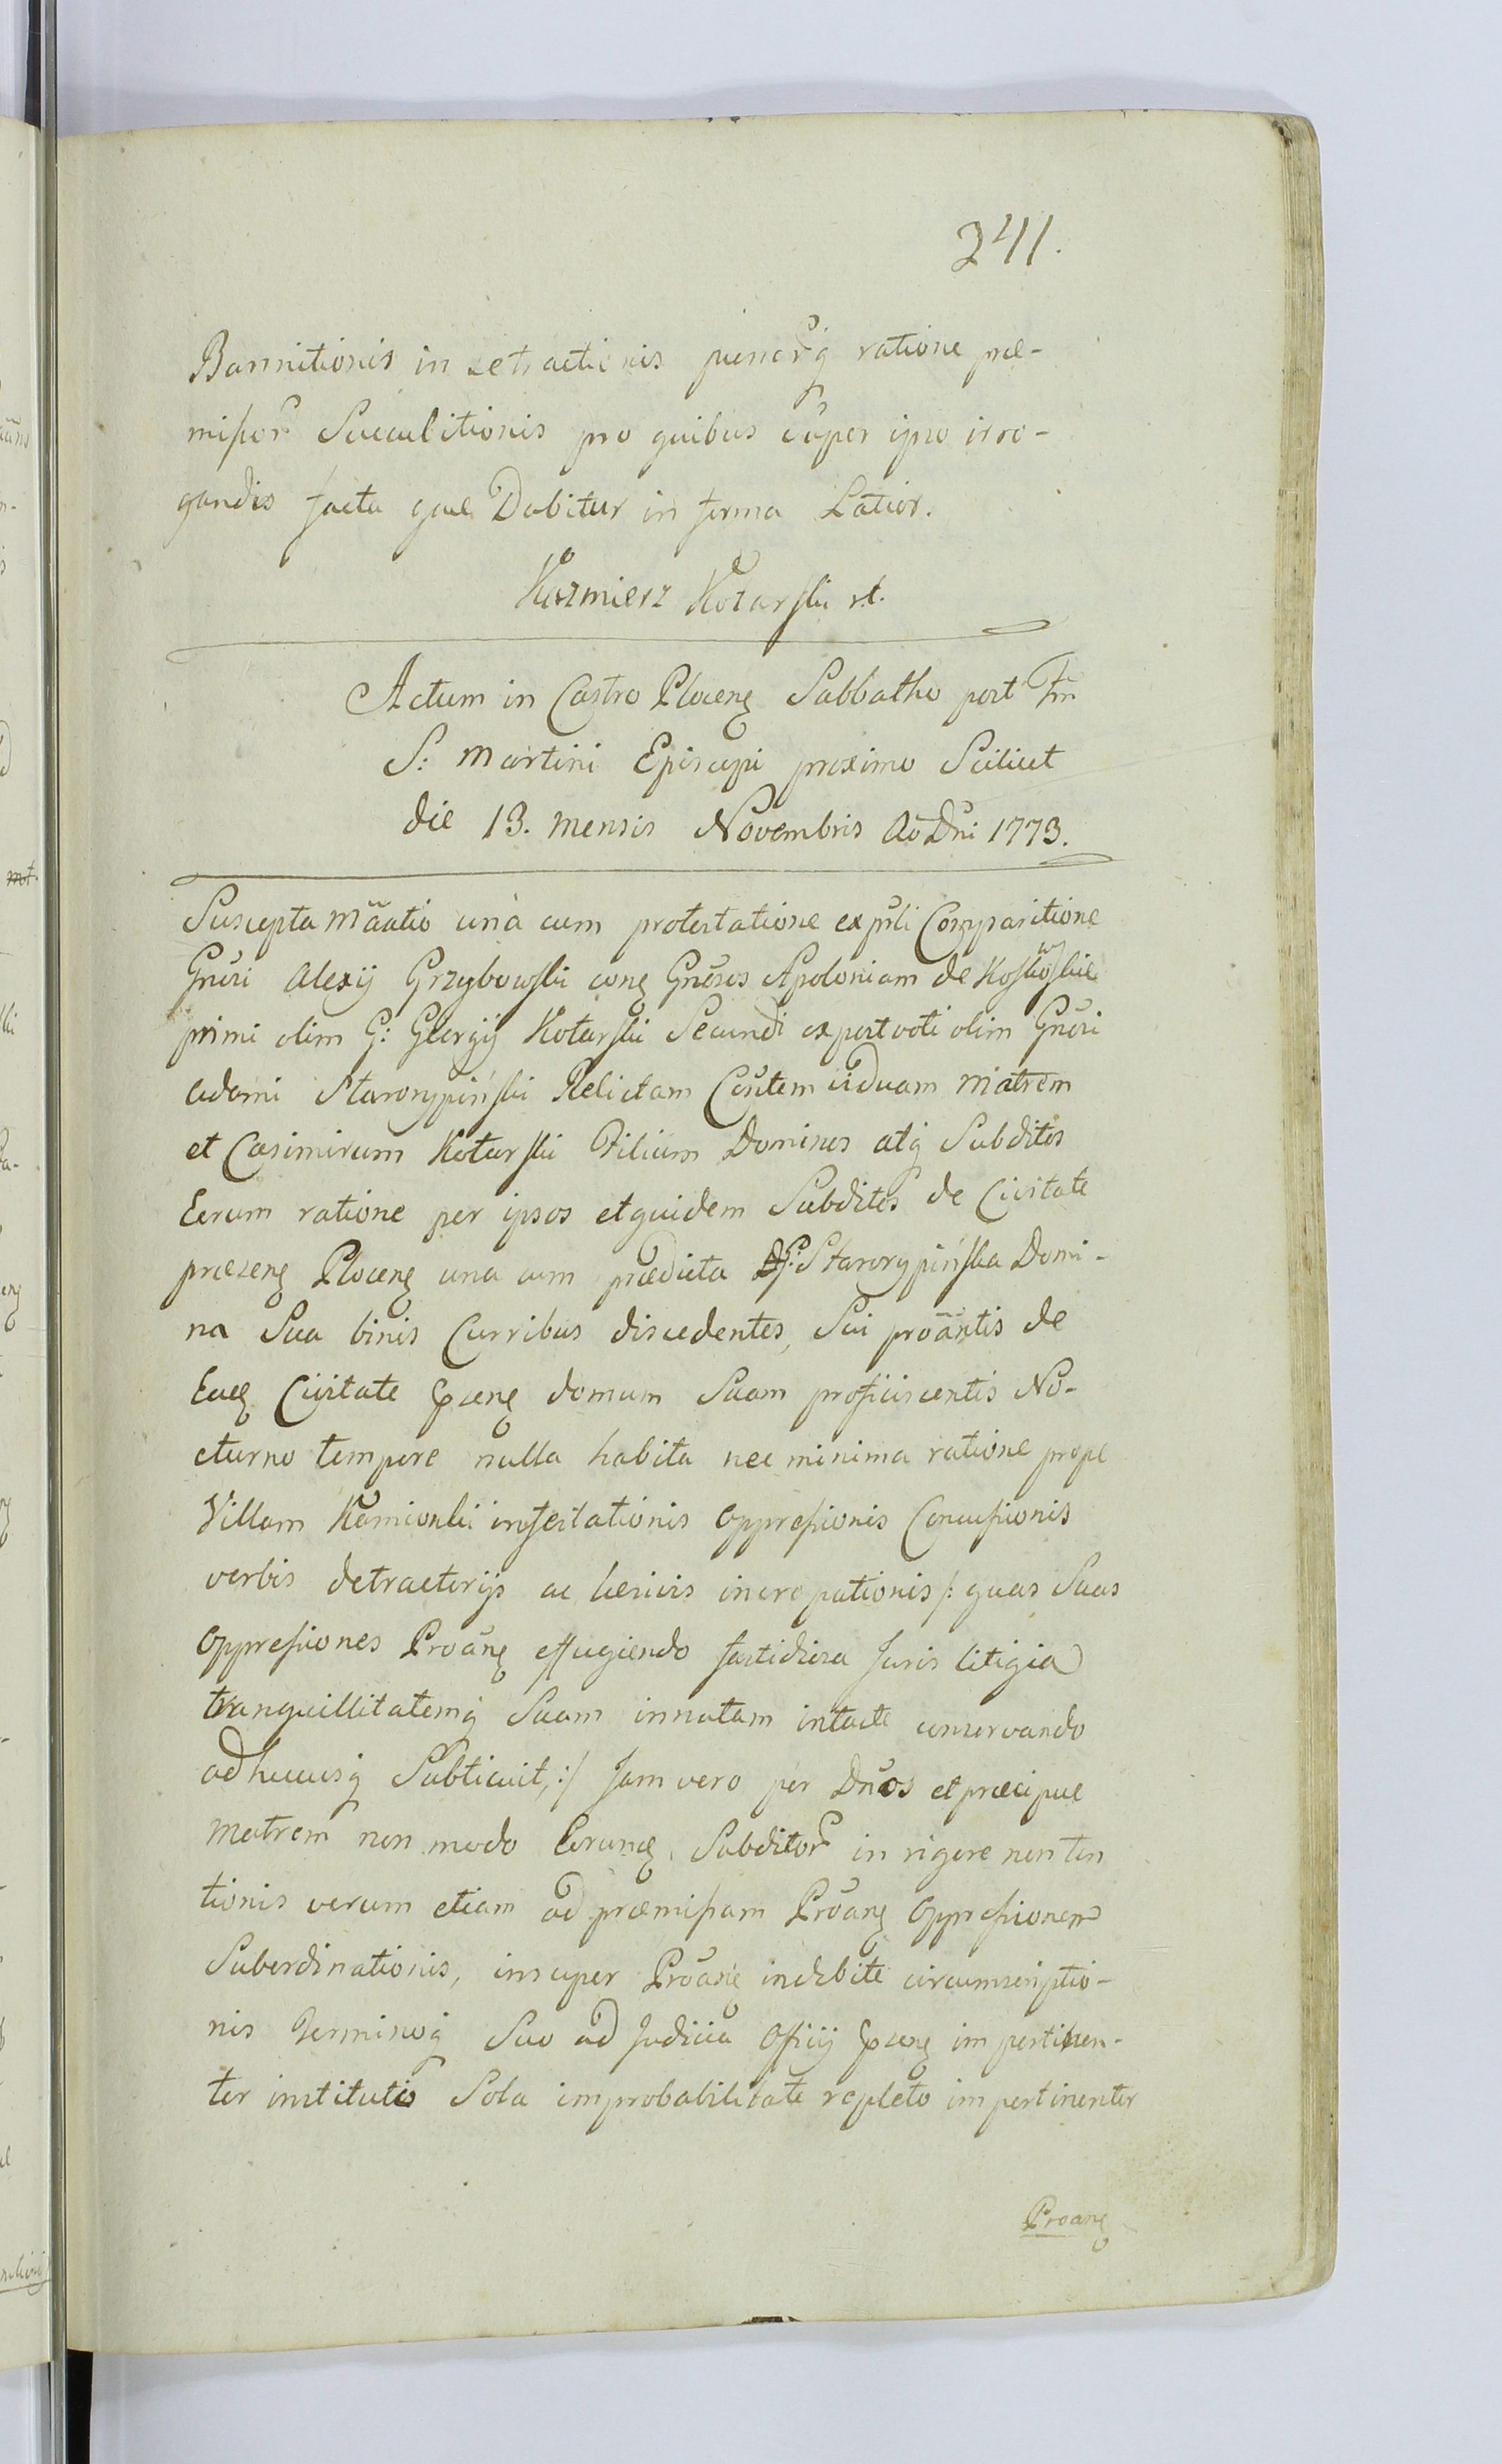 241.
Bannitionis in retractionis pienorq̃ ratione præ-
missor̃ Succubitionis pro quibus super ipso irro-
gandis facta quæ Dabitur in forma Latior.
Kazmierz Kotarski r.t.
Actum in Castro Plocenȝ Sabbatho post Fm̃
S: Martini Episcopi proximo Scilicet
die 13. mensis Novembris Aõ Dñi 1773.
Suscepta Mãatio unà cum protestatione ex pñli Comparitione
Gñsi Alexij Grzybowski conȝ Gñsos Apoloniam de Koskowskie
primi olim G: Georgij Kotarski Secundi ex post voti olim Gñsi
Adami Starorypiński Relictam Coñtem viduam Matrem
et Casimirum Kotarski Filium Dominos atq̃ Subditos
Eorum ratione per ipsos et quidem Subditos de Civitate
præsenȝ Plocenȝ una cum prædicta G: Starorypińska Domi-
na Sua binis Curribus discedentes, Sui proãntis de
Eaȝ Civitate pscnȝ domum Suam proficiscentis No-
cturno tempore nulla habita nec minima ratione prope
Villam Kamionki infestationis oppressionis Concussionis
verbis detractorijs ac læsivis increpationis /: quas Suas
oppressiones Proãnȝ effugiendo fastidiosa Juris litigia
tranquillitatemq̃ Suam innatam intacte conservando
adhucusq̃ Subticuit, :/ Jam vero per Dños et præcipue
Matrem non modo Eorunȝ Subditor̃ in rigore non ten
tionis verum etiam ad præmissam Proãnȝ oppressionem
Subordinationis, insuper Proãnȝ indebite circumscriptio-
nis Terminoq̃ Suo ad Judicia Officij pscnȝ impertinen-
ter instituto Sola improbabilitate repleto impertinenter
Proanȝ